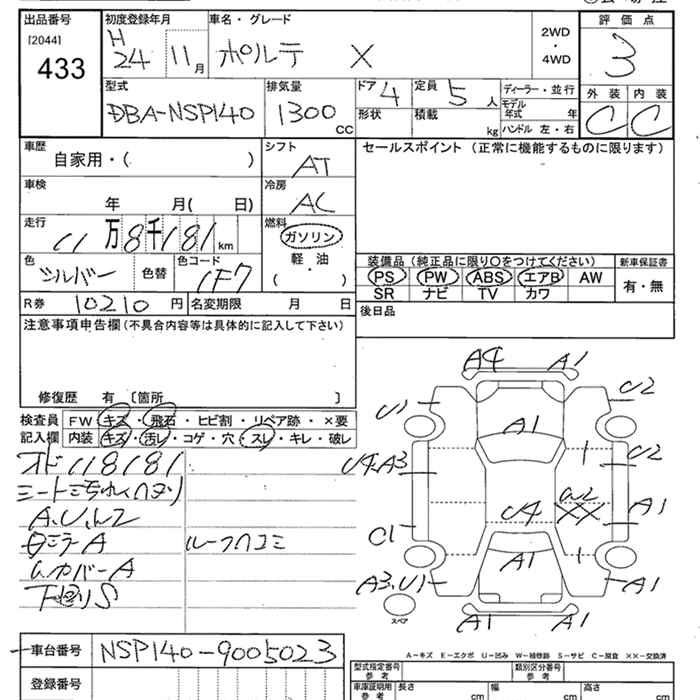 出品番号 初度登録年月 車名・グレード 2WD ・ 4WD 評価点
[2044] H
433 24 11月 ポルテ X 3
型式 排気量 ドア 定員 ディーラー・並行 外装 内装
DBA-NSP140 1300cc 4 5人 モデル年式 年 C C
形状 積載 kg ハンドル 左・右
車歴 シフト セールスポイント (正常に機能するものに限ります)
自家用・( ) AT
車検 冷房
年 月( 日) AC
走行 燃料
11万8千181km ガソリン
色 色コード 軽油
シルバー 色替 1F7 ・ ( )
装備品 (純正品に限り○をつけてください) 新車保証書
PS PW ABS エアB AW 有・無
SR ナビ TV カワ
R券 10210円 名変期限 月 日 後日品
注意事項申告欄(不具合内容等は具体的に記入して下さい)
修復歴 有 [箇所 ]
検査員 FW キズ・飛石・ヒビ割・リペア跡・×要
記入欄 内装 キズ・汚レ・コゲ・穴・スレ・キレ・破レ
オド118181
A.U.
ミラーA ルーフハコミ
カバーA
下廻りS
A4 A1
U1 U2
A1
U4.A3 1 U2
U4 W2 XX A1
C1 A1 1
A3.U1 A1
スペア A1 A1
A-キズ E-エクボ U-凹み W-補修跡 S-サビ C-腐食 XX-交換済
車台番号 NSP140-9005023
登録番号
型式指定番号 参考 類別区分番号 参考
車庫証明用 参考 長さ cm 幅 cm 高さ cm